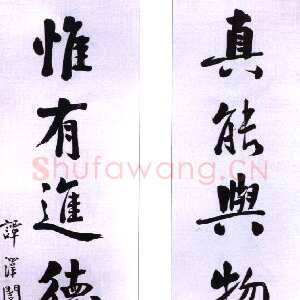 真能與物
惟有進德
譚澤闓
Shufawang.CN